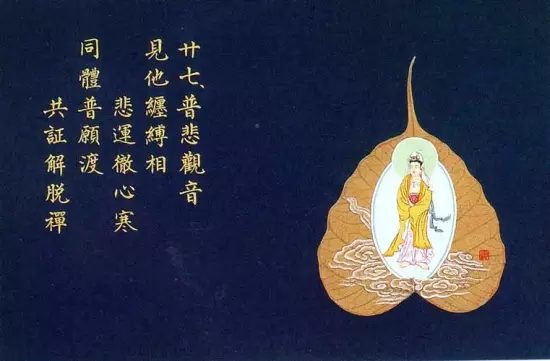 廿七、普悲觀音
見他纏縛相
悲運徹心寒
同體普願渡
共証解脫禪